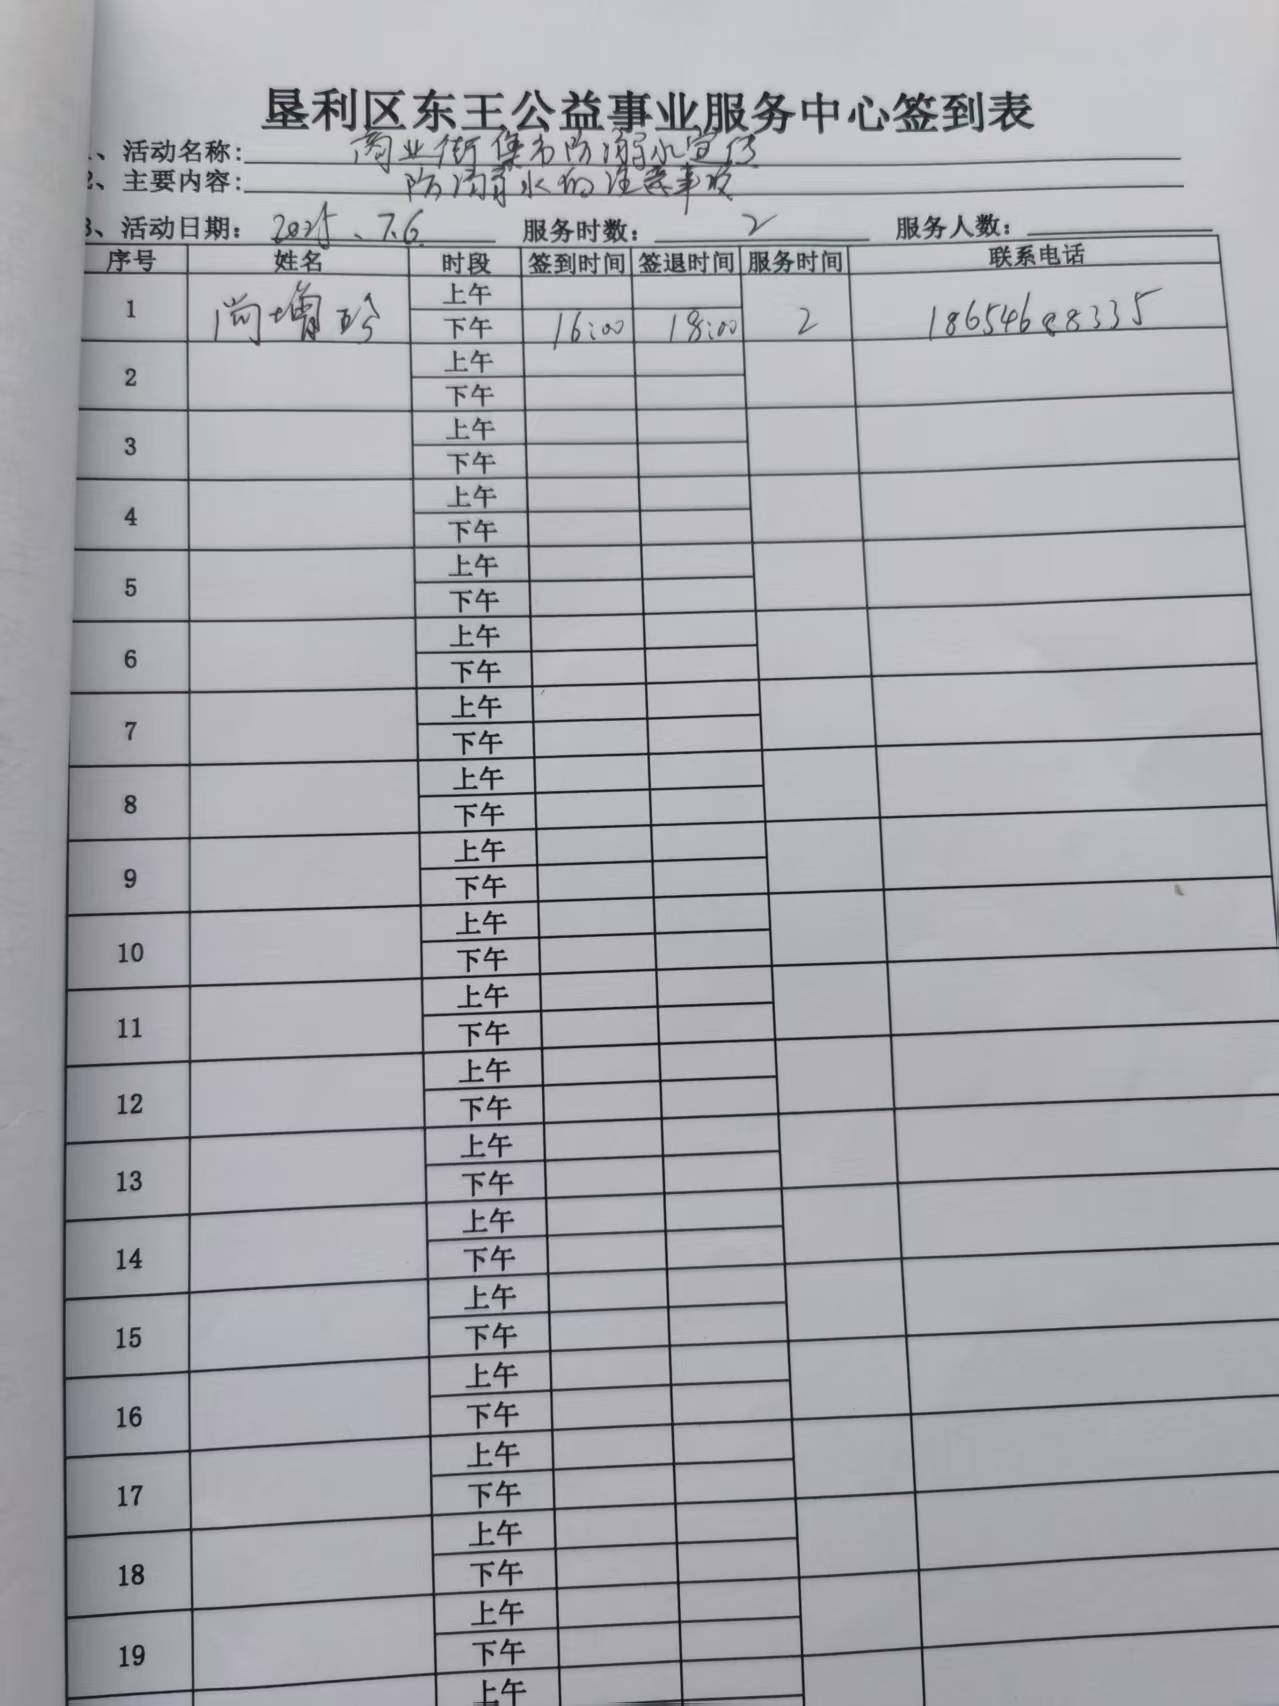 垦利区东王公益事业服务中心签到表
1、活动名称: 商业街集市防溺水宣传
2、主要内容: 防溺水的注意事项
3、活动日期: 2025、7.6 服务时数: 2 服务人数:
序号 姓名 时段 签到时间 签退时间 服务时间 联系电话
1 尚增珍 上午
下午 16:00 18:00 2
2 上午
下午
3 上午
下午
4 上午
下午
5 上午
下午
6 上午
下午
7 上午
下午
8 上午
下午
9 上午
下午
10 上午
下午
11 上午
下午
12 上午
下午
13 上午
下午
14 上午
下午
15 上午
下午
16 上午
下午
17 上午
下午
18 上午
下午
19 上午
下午
上午